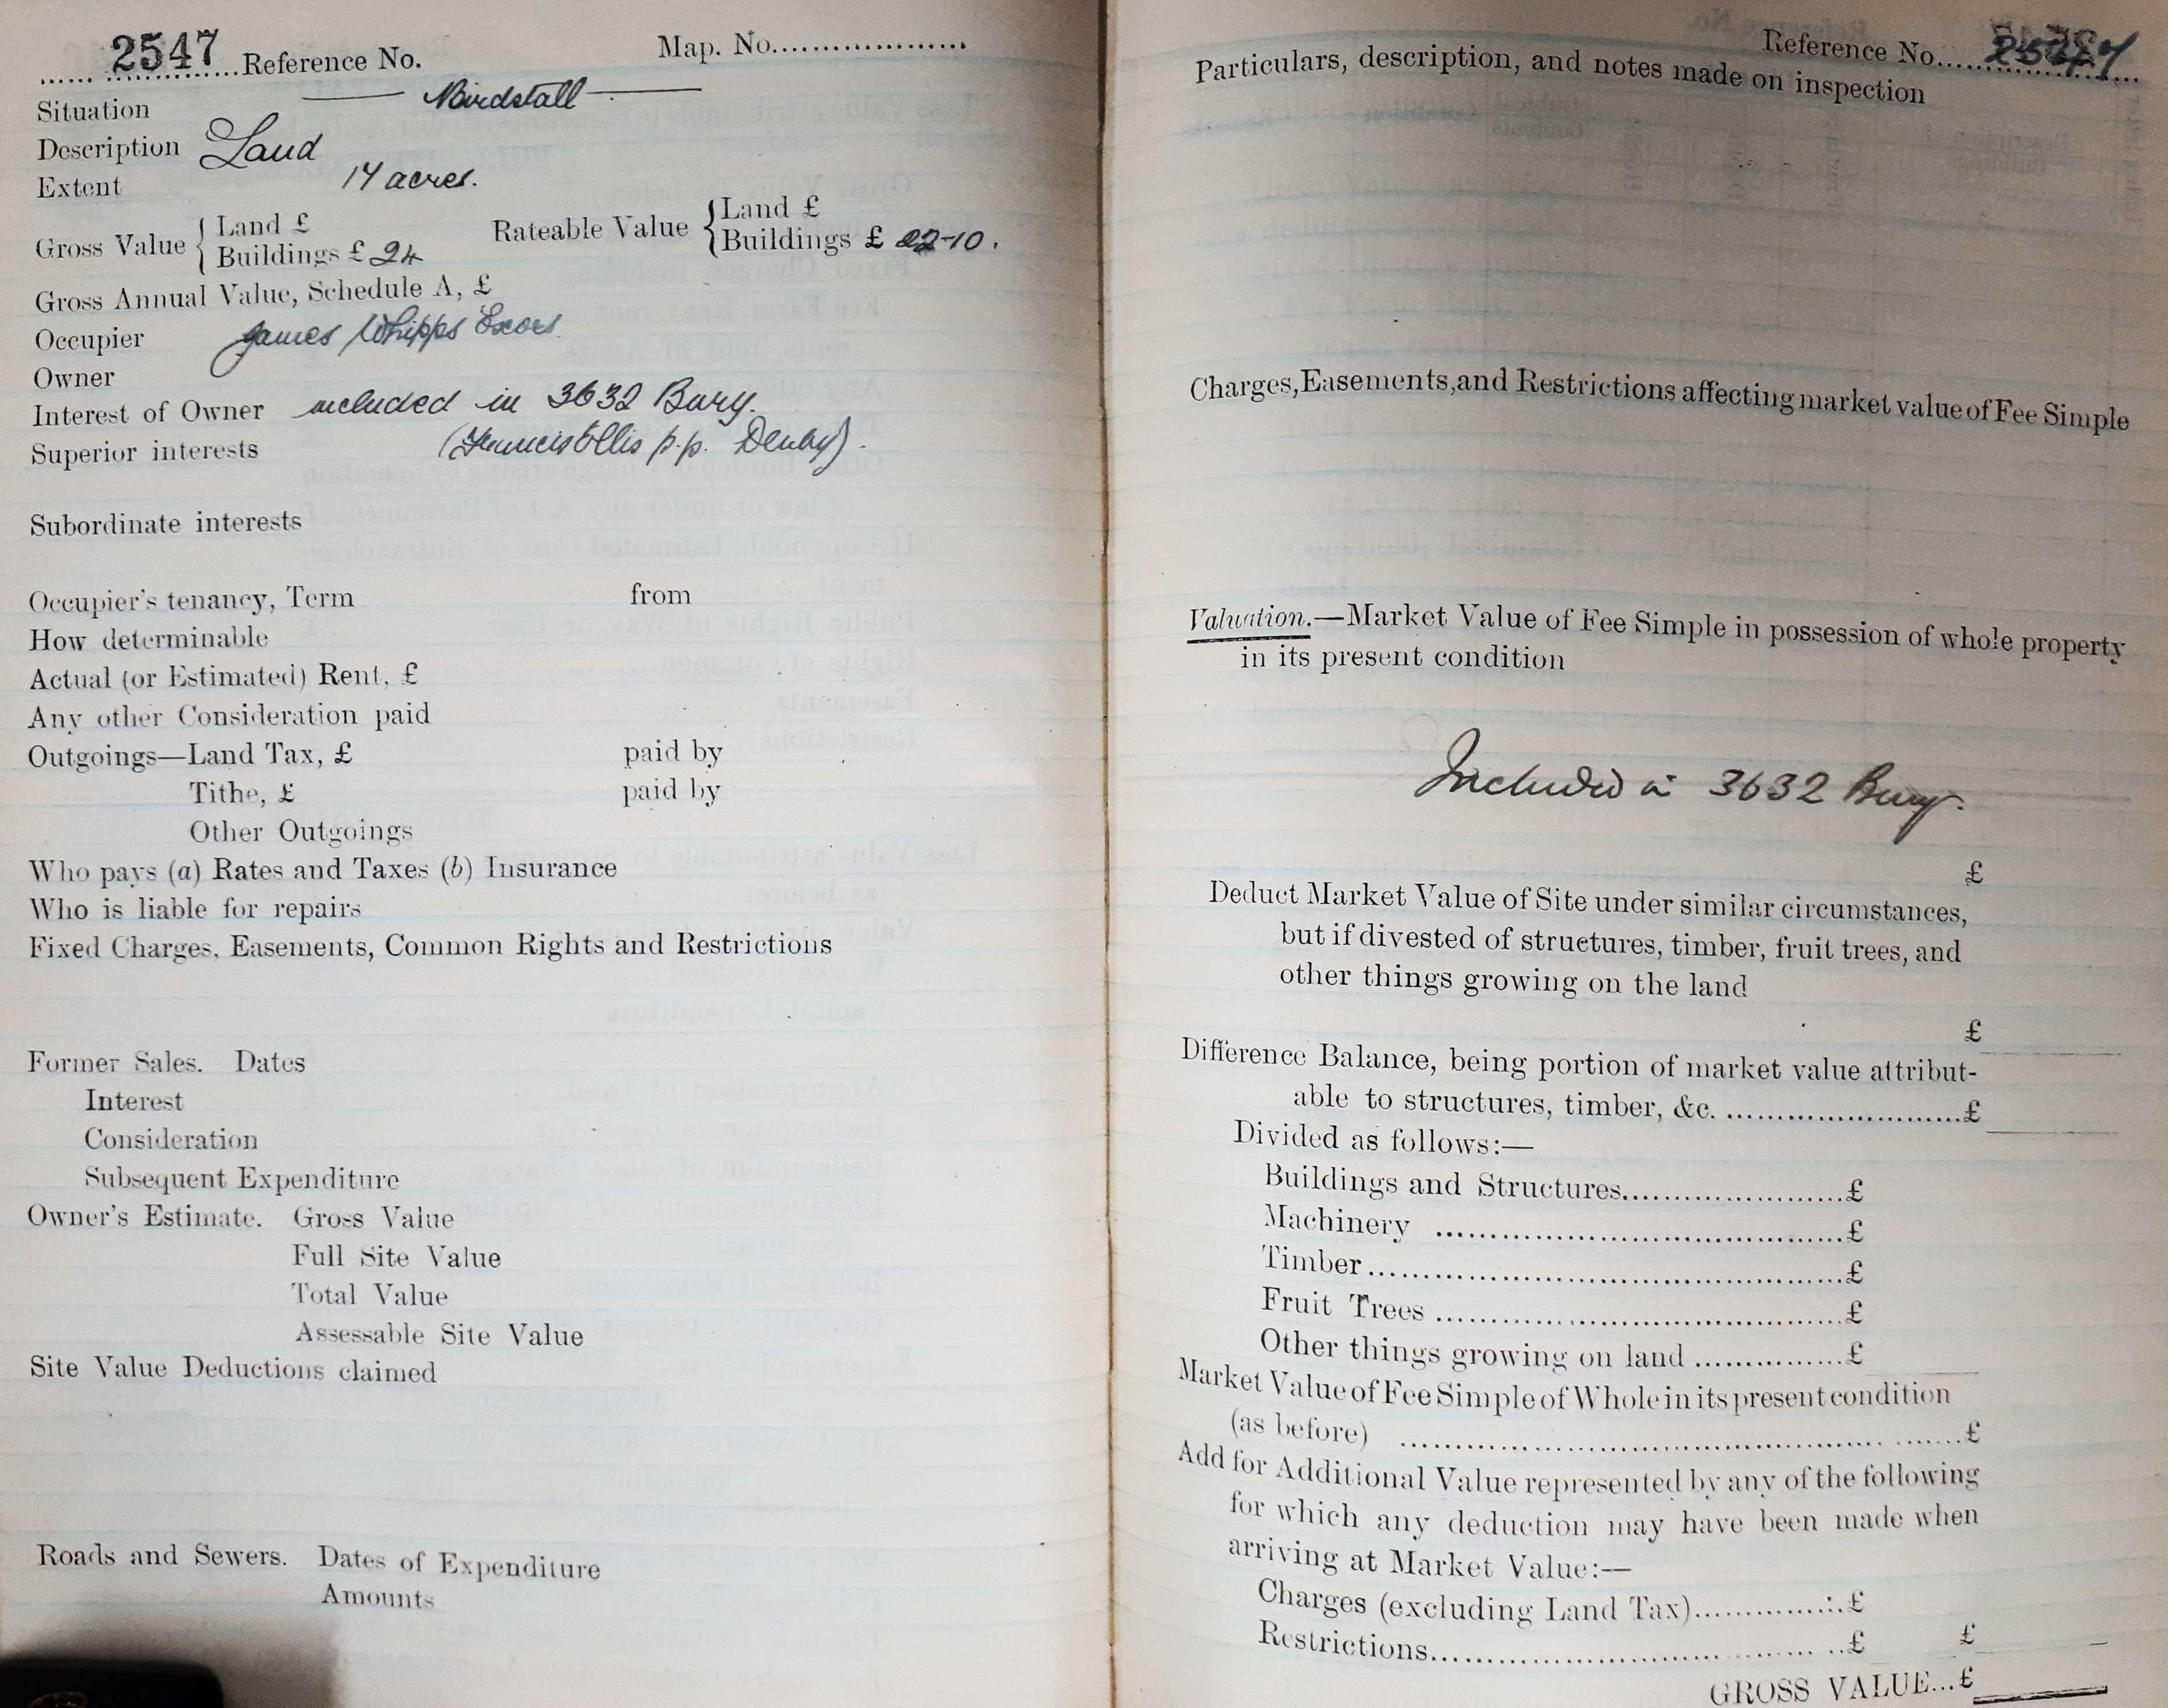 2547 Reference No. Map. No...................
Situation Birdstall
Description Land
Extent 14 acres.
Gross Value { Land £ Rateable Value { Land £
Buildings £ 24 Buildings £ 22-10.
Gross Annual Value, Schedule A, £
Occupier James Whipps Exors
Owner
Interest of Owner included in 3632 Bury.
Superior interests (Francis Ellis p.p. Denby).
Subordinate interests
Occupier's tenancy, Term from
How determinable
Actual (or Estimated) Rent, £
Any other Consideration paid
Outgoings—Land Tax, £ paid by
Tithe, £ paid by
Other Outgoings
Who pays (a) Rates and Taxes (b) Insurance
Who is liable for repairs
Fixed Charges, Easements, Common Rights and Restrictions
Former Sales. Dates
Interest
Consideration
Subsequent Expenditure
Owner's Estimate. Gross Value
Full Site Value
Total Value
Assessable Site Value
Site Value Deductions claimed
Roads and Sewers. Dates of Expenditure
Amounts
Reference No. 2547
Particulars, description, and notes made on inspection
Charges, Easements, and Restrictions affecting market value of Fee Simple
Valuation.—Market Value of Fee Simple in possession of whole property
in its present condition
Included in 3632 Bury.
£
Deduct Market Value of Site under similar circumstances,
but if divested of structures, timber, fruit trees, and
other things growing on the land
£
Difference Balance, being portion of market value attribut-
able to structures, timber, &c. ........................£
Divided as follows:—
Buildings and Structures......................£
Machinery ......................................£
Timber............................................£
Fruit Trees ......................................£
Other things growing on land ...............£
Market Value of Fee Simple of Whole in its present condition
(as before) ......................................................£
Add for Additional Value represented by any of the following
for which any deduction may have been made when
arriving at Market Value:—
Charges (excluding Land Tax)..............£
Restrictions......................................£ £
GROSS VALUE...£